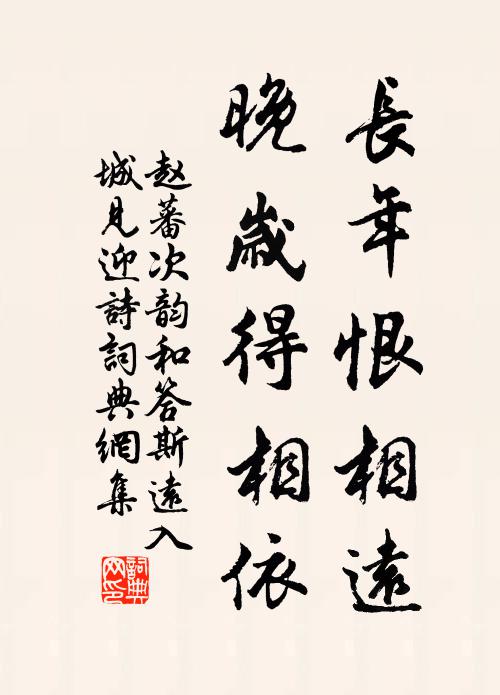 長年恨相遠
晚歲得相依
赵蕃次韵和答斯遠入
城見迎詩詞典網集
詞典网印